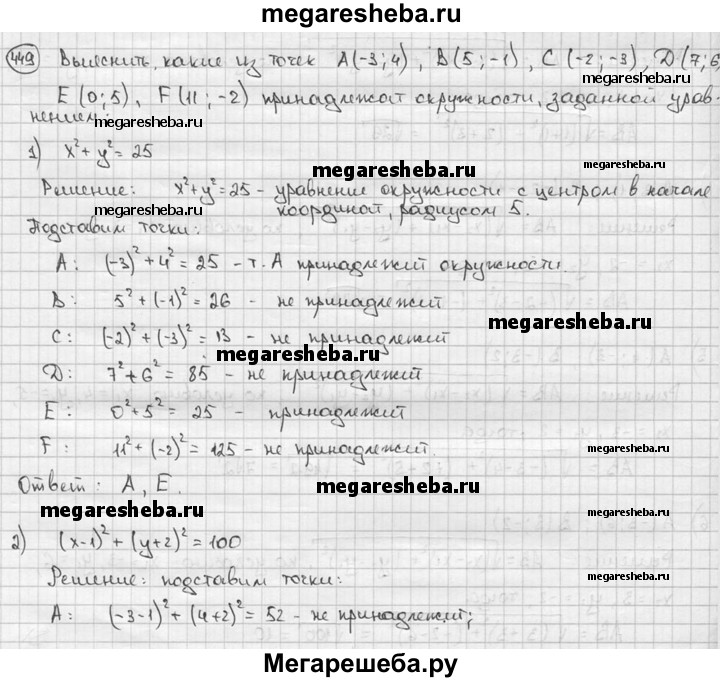 megaresheba.ru
449 Выяснить, какие из точек A(-3;4), B(5;-1), C(-2;-3), D(7;6
megaresheba.ru
E(0;5), F(11;-2) принадлежат окружности, заданной урав-
нением:
megaresheba.ru
1) x²+y²=25
megaresheba.ru
Решение: x²+y²=25 - уравнение окружности с центром в начале
координат, радиусом 5.
megaresheba.ru
Подставим точки:
A: (-3)²+4²=25 - т. A принадлежит окружности.
megaresheba.ru
B: 5²+(-1)²=26 - не принадлежит
megaresheba.ru
C: (-2)²+(-3)²=13 - не принадлежит
megaresheba.ru
D: 7²+6²=85 - не принадлежит
E: 0²+5²=25 - принадлежит
F: 11²+(-2)²=125 - не принадлежит.
megaresheba.ru
Ответ: A, E.
megaresheba.ru
megaresheba.ru
2) (x-1)²+(y+2)²=100
Решение: подставим точки:
megaresheba.ru
A: (-3-1)²+(4+2)²=52 - не принадлежит;
Мегарешеба.ру